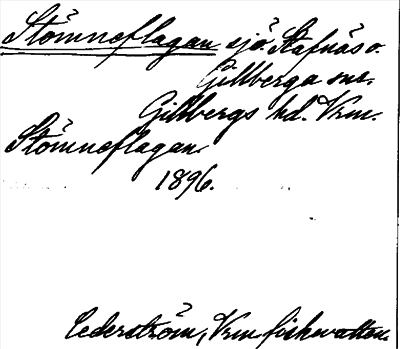 Stömneflagan sjö Stafnäs o.
Gillberga sns.
Gillbergs hd. Vrm.
Stömneflagan
1896.
Cederström, Vrm fiskevatten.